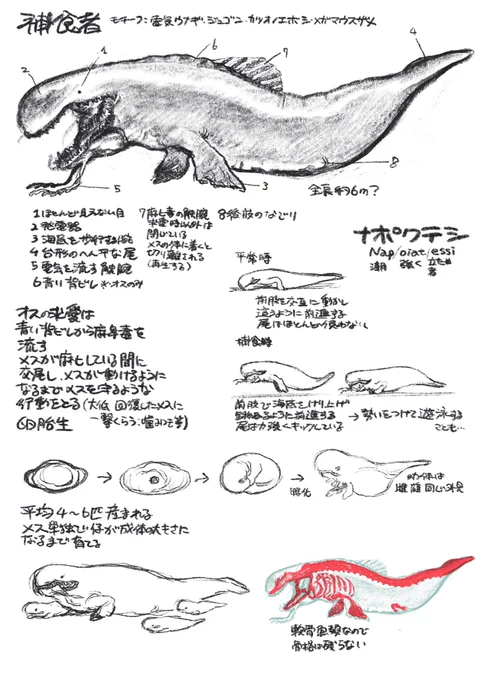 補食者
モチーフ:電気ウナギ・ジュゴン・カツオノエボシ・メガマウスザメ
1
2
3
4
5
6
7
8
全長約6m?
1 ほとんど見えない目
2 発電器
3 海底を歩行する腕
4 台形のへん平な尾
5 電気を流す触腕
6 青い背ビレ オスのみ
7 麻ヒ毒の触腕
求愛時以外は
閉じている
メスの体に着くと
切り離される
(再生する)
8 後肢のなごり
ナポワテシ
Nap/oiat/essi
潮 強く 立たせる者
オスの求愛は
青い背ビレから麻ヒ毒を
流す
メスが麻ヒしている間に
交尾し、メスが動けるように
なるまでメスを守るような
行動をとる(大低 回復したメスに
一撃くらう:噛みつき等)
胎生
平常時
前肢を交互に動かし
這うように前進する
尾はほとんど使わない
捕食時
前肢で海底を
前進する
尾は力強くキックしている
→勢いをつけて遊泳する
ことも…
孵化
幼体は
雌雄同じ外見
平均4~6匹産まれる
メス単独で仔が成体の大きさに
なるまで育てる
軟骨魚類なので
骨格は残らない